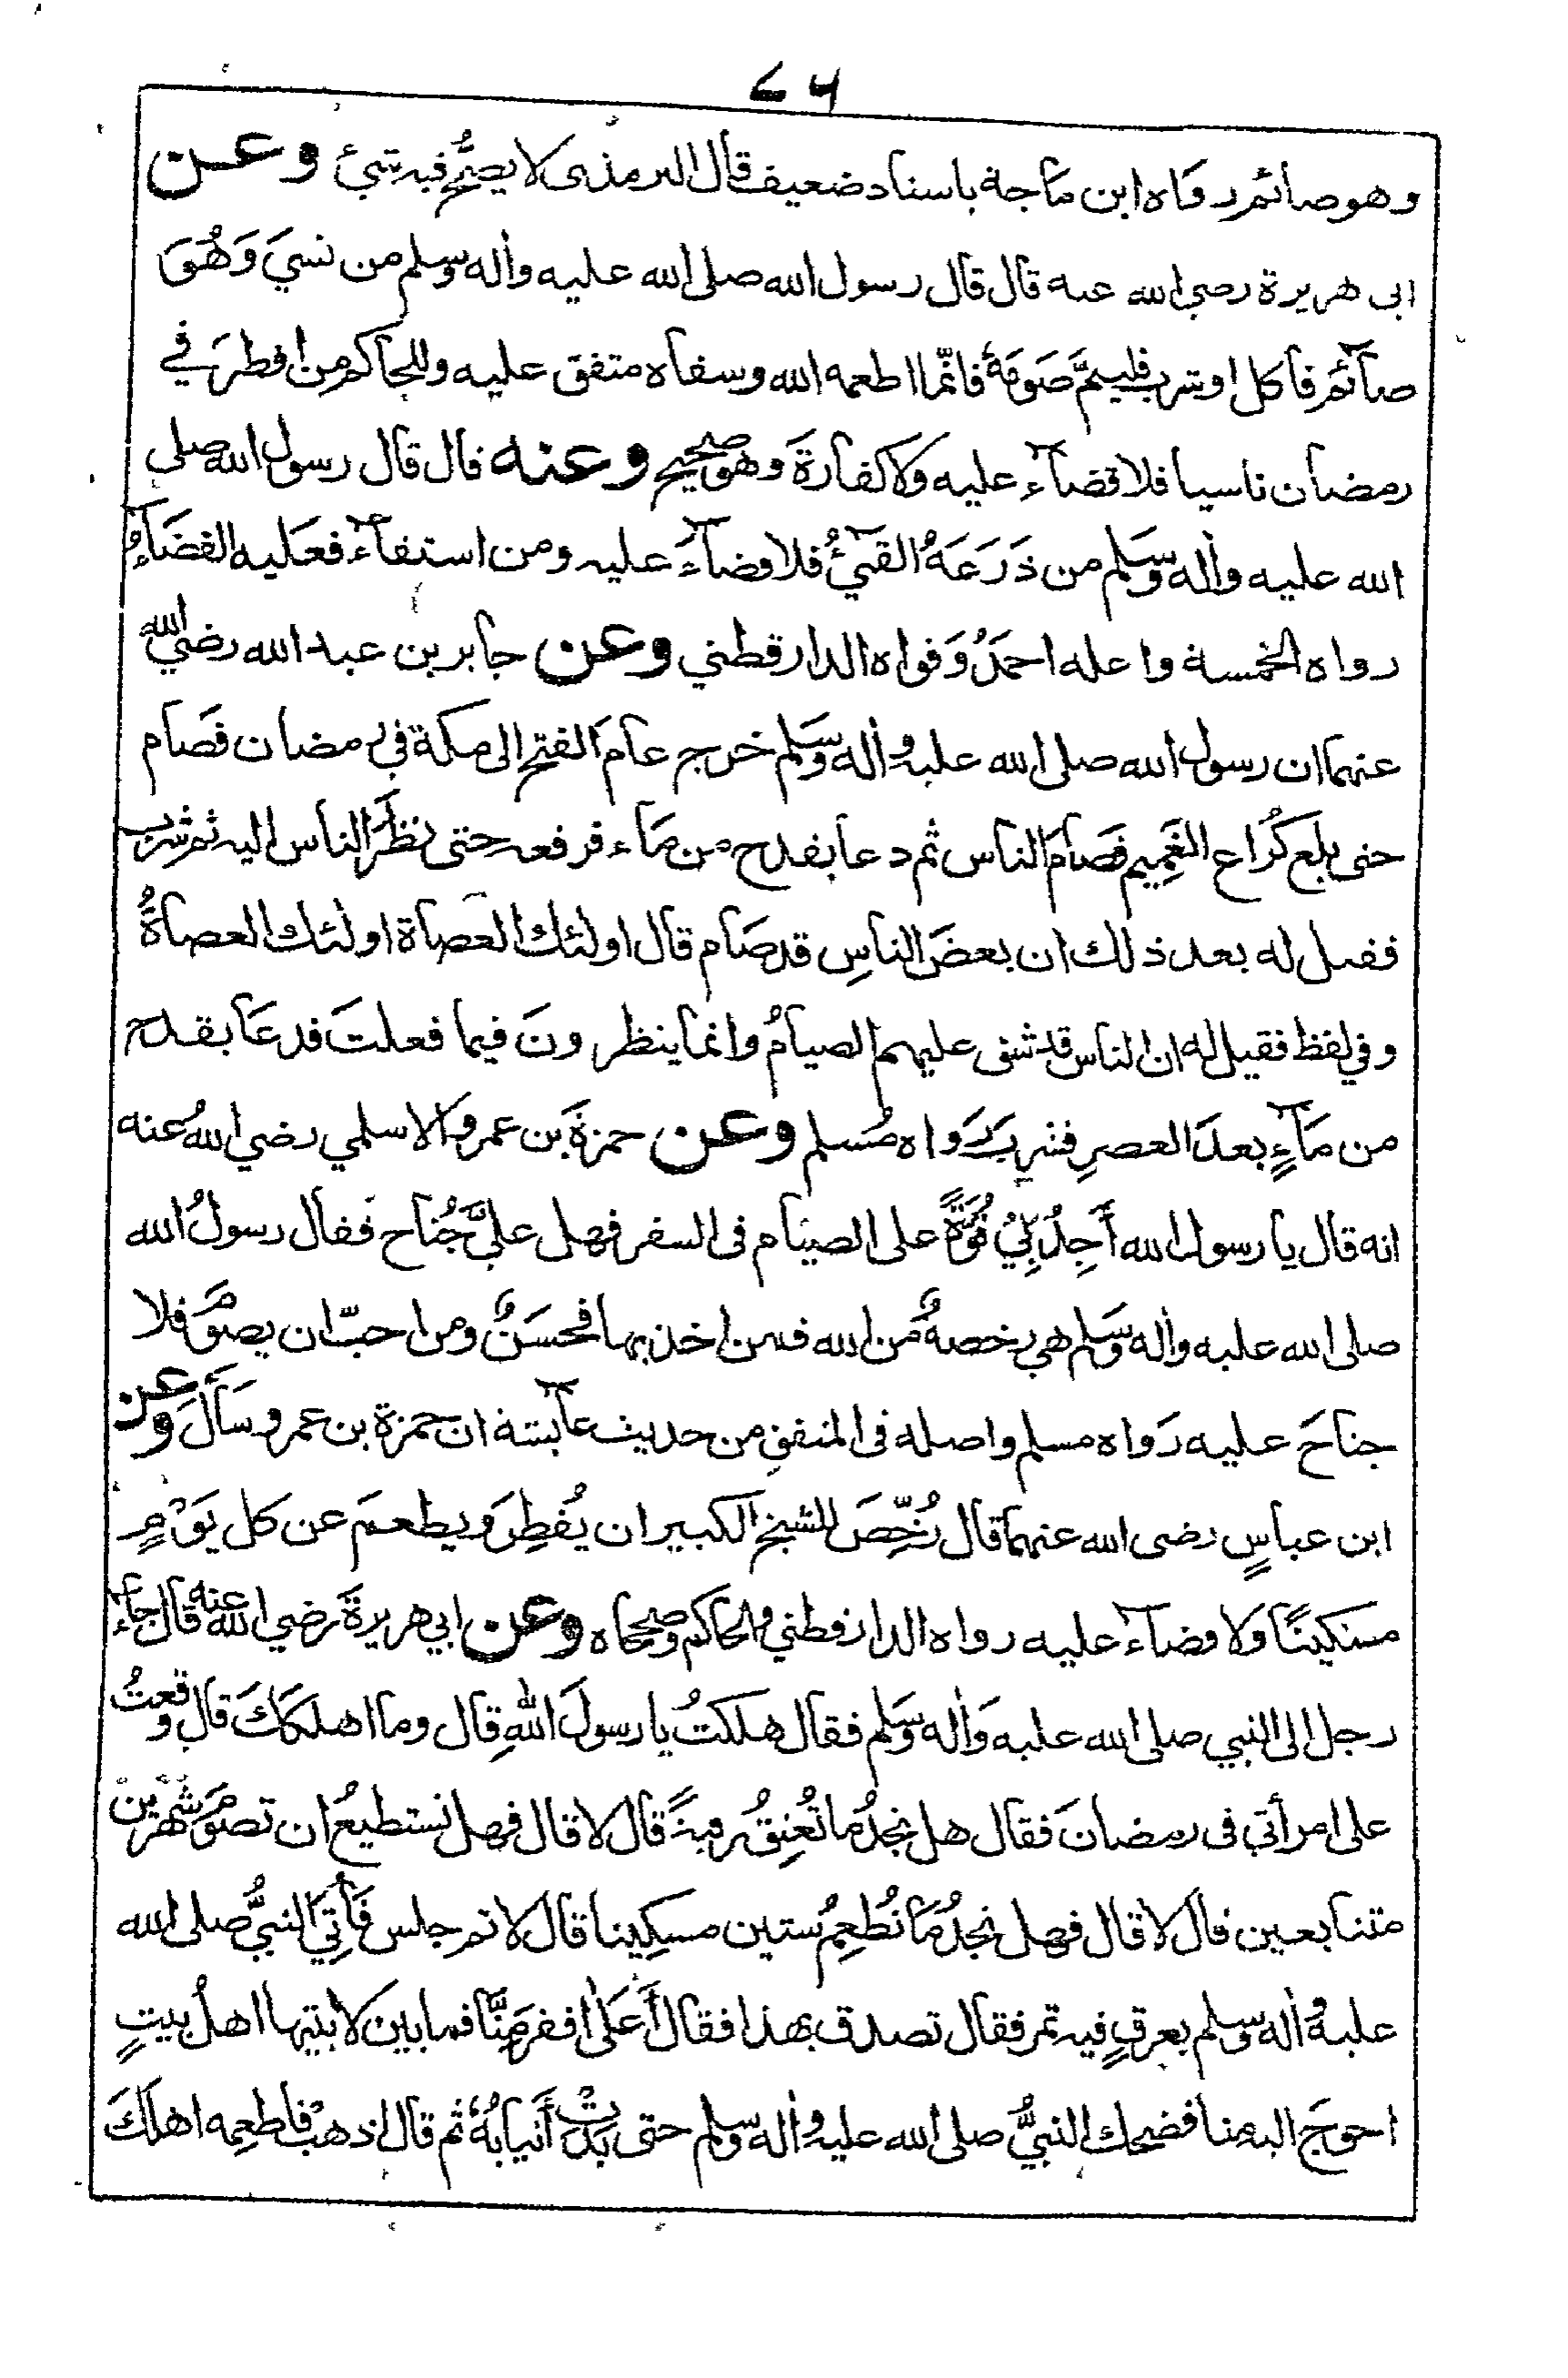 ٧٦
وهو صائم رواه ابن ماجة باسناد ضعيف قال الترمذى لا يصحُّ فيه شئ وعن
ابى هريرة رضي الله عنه قال قال رسول الله صلى الله عليه واٰله وسلم من نسيَ وَهُوَ
صآئم فاكل او شرب فليتمَّ صَومَهُ فانّما اطعمه الله وسقاه متفق عليه وللحاكم مِن افطرَ في
رمضان ناسيا فلا قضآء عليه ولا كفارةَ وهو صحيح وعنه قال قال رسول الله صلى
الله عليه واٰله وسَلم من ذَرَعَهُ القَيْئُ فلا قضآءَ عليه ومن استقآء فعَليه القضَآءُ
رواه الخمسة واعله احمَدُ وَقواه الدارقطني وعن جابر بن عبد الله رضي الله
عنهما ان رسول الله صلى الله عليه واٰله وسَلم خرج عامَ الفتح الى مكة في رمضان فصَام
حتى بلغ كُراع الغَمِيم فصَامَ الناس ثم دعا بقدح من مَاء فرفعه حتى نظَرَ الناس اليه ثم شرب
فقيل له بعد ذلك ان بعضَ الناسِ قد صَام قال اولئك العصَاة اولئك العصاةُ
وفي لفظ فقيل له ان الناس قد شق عليهم الصيامُ وانما ينظرونَ فيما فعلتَ فدعَا بقدح
من مَآءٍ بعدَ العصرِ فشرِبَ رَواه مُسلم وعن حمزةَ بن عمرو الاسلمي رضي اللهُ عنه
انه قال يا رسول الله أَجِدُ بِيْ قُوَّةً على الصيَام فى السفر فهل عليَّ جُناح فقال رسولُ الله
صلى الله عليه واٰله وسَلم هي رخصةٌ من الله فمن اخذ بها فحسَنٌ ومن احبّ ان يصومَ فلا
جناحَ عليه رَواه مسلم واصله فى المتفقِ من حديث عآئشة ان حمزة بن عمرو سَأَلَ وعن
ابن عباسٍ رضى الله عنهما قال رُخِّصَ للشيخ الكبير ان يُفطِرَ ويطعمَ عن كل يَوْمٍ
مسكينًا وَلا قضآءَ عليه رواه الدارقطني والحاكم وصححاه وعن ابي هريرةَ رضي الله عنه قال جاءَ
رجل الى النبي صلى الله عليه وَاٰله وَسَلم فقال هلكتُ يا رسولَ اللهِ قال وما اهلكَكَ قال وقعتُ
على امرأتي فى رمضانَ فقال هل تجدُ ما تُعتِقُ رقبةً قال لا قال فهل تستطيعُ ان تصومَ شهرين
متتابعين قال لا قال فهل تجدُ مَا تُطعِمُ ستين مسكِينا قال لا ثم جلس فَأُتِيَ النبيُّ صلى الله
عليه واٰله وسلم بعرقٍ فيه تمر فقال تصدق بهذا فقال أَعَلى افقرَ مِنَّا فما بين لابتيها اهلُ بيتٍ
احوجَ اليه منا فضحك النبيُّ صلى الله عليه واٰله وسلم حتى بَدَتْ أَنيابُهُ ثم قال اذهبْ فاطعِمه اهلَكَ